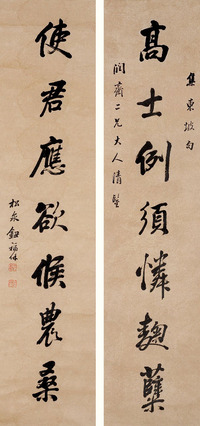 集東坡句
高士例須憐麴蘖
潤齋二兄大人清鑒
使君應欲候農桑
松泉鈕福保